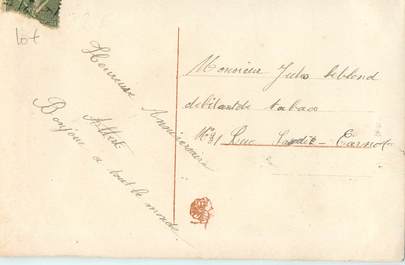 lot
Heureuse Anniversaire
Albert
Bonjour a tout le monde
Monsieur Jules Leblond
debitant de tabac
Rue Sadi-Carnot